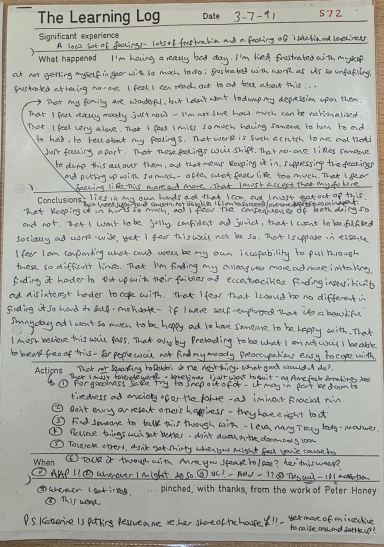 The Learning Log Date 3-7-91 572
Significant experience
A low sort of feelings - lots of frustration and a feeling of isolation and loneliness.
What happened I'm having a really bad day. I'm tired, frustrated with myself
at not getting myself in gear with so much to do; frustrated with work as it's so unfulfilling,
frustrated at having no-one I feel I can reach out to and tell about this...
That my family are wonderful, but I don't want to dump my depression upon them.
That I feel really moody just now - I'm not sure how much can be rationalised
That I feel very alone. That I miss so much having someone to turn to and
to hold, to tell about my feelings. That work is such a to me and that I'm
just feeling apart. That these feelings will shift. That no-one likes someone
to dump this all on them, and that means keeping it in, suppressing the feelings
and putting up with so much - often what feels like too much. That I fear
feeling like this more and more. That I must accept that my future
Conclusions lies in my own hands and that I can and I must get out of this
That keeping it in hurts so much, and I fear the consequences of both doing so
and not. That I want to be confident and jovial; that I want to be fulfilled
socially and work-wise, yet I fear this will not be so. That I suppose in essence
I fear I am confronting what could well be my own incapability to pull through
these so difficult times. That I'm finding my colleagues more and more irritating,
finding it harder to put up with their foibles and eccentricities. Finding insensitivity
and disinterest harder to cope with. That I fear that I would be no different in
finding it so hard to self-motivate - if I were self-employed. That it's a beautiful
sunny day and I want so much to be happy and to have someone to be happy with. That
I must believe this will pass. That only by pretending to be what I am not will I be able
to break free of this - for people will not find my moody preoccupations easy to cope with
Actions That not speaking to Debbi is the right thing what good would it do?
① For goodness sake try to snap out of it - it may in part be down to
tiredness and anxiety over the future - and imminent financial ruin.
② Don't envy or resent others happiness - they have a right to it
③ Find someone to talk this through with
④ Believe things will get better - don't dwell in the doom and gloom
⑤ Tolerate others, don't get shirty when you might feel you've cause to
When ⑥ Talk it through with
① ASAP!! ② Whenever I might do so.
③ Whenever I get stressed. ....pinched, with thanks, from the work of Peter Honey
④ This week
P.S. Katherine is putting pressure on me re. her share of the house!!